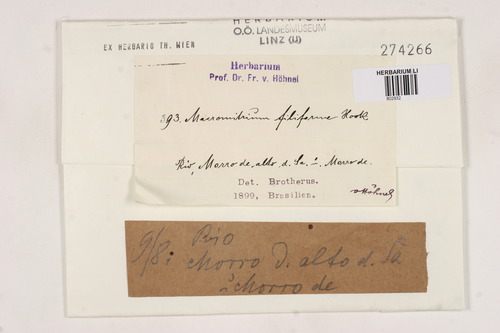 HERBARIUM
O.Ö. LANDESMUSEUM
LINZ (LI)
EX HERBARIO TH. WIEN
274266
HERBARIUM LI
Herbarium
Prof. Dr. Fr. v. Höhnel
393. Macromitrium filiforme Hook
Rio, Morro de, alto d. Sa. Morro de.
Det. Brotherus.
1899, Brasilien.
v Höhnel
9/8. Rio
Morro d. alto d. Sa
Morro de